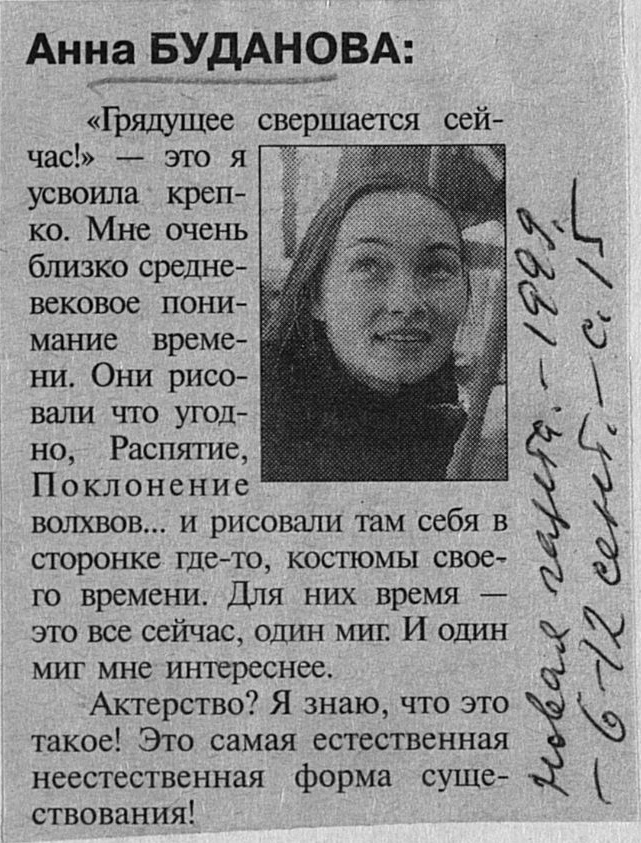 Анна БУДАНОВА:
«Грядущее свершается сей-
час!» — это я
усвоила креп-
ко. Мне очень
близко средне-
вековое пони-
мание време-
ни. Они рисо-
вали что угод-
но, Распятие,
Поклонение
волхвов... и рисовали там себя в
сторонке где-то, костюмы свое-
го времени. Для них время —
это все сейчас, один миг. И один
миг мне интереснее.
Актерство? Я знаю, что это
такое! Это самая естественная
неестественная форма суще-
ствования!
Новая газета. – 1999.
– 6–12 сент. – с. 15